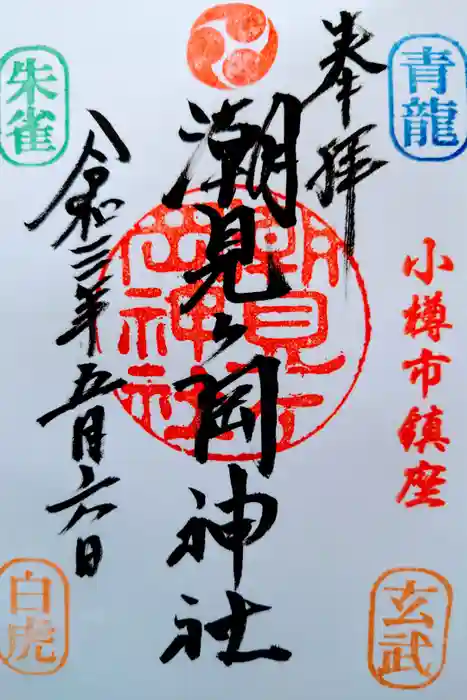 奉拝
青龍
小樽市鎮座
玄武
潮見ヶ岡神社
潮見ヶ
岡神社
令和三年五月六日
朱雀
白虎